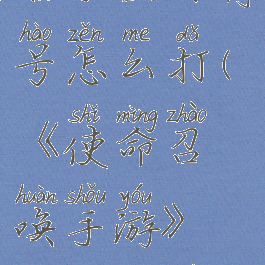 hào zěn me dǎ
号怎么打(
shǐ mìng zhào
《使命召
huàn shǒu yóu
唤手游》